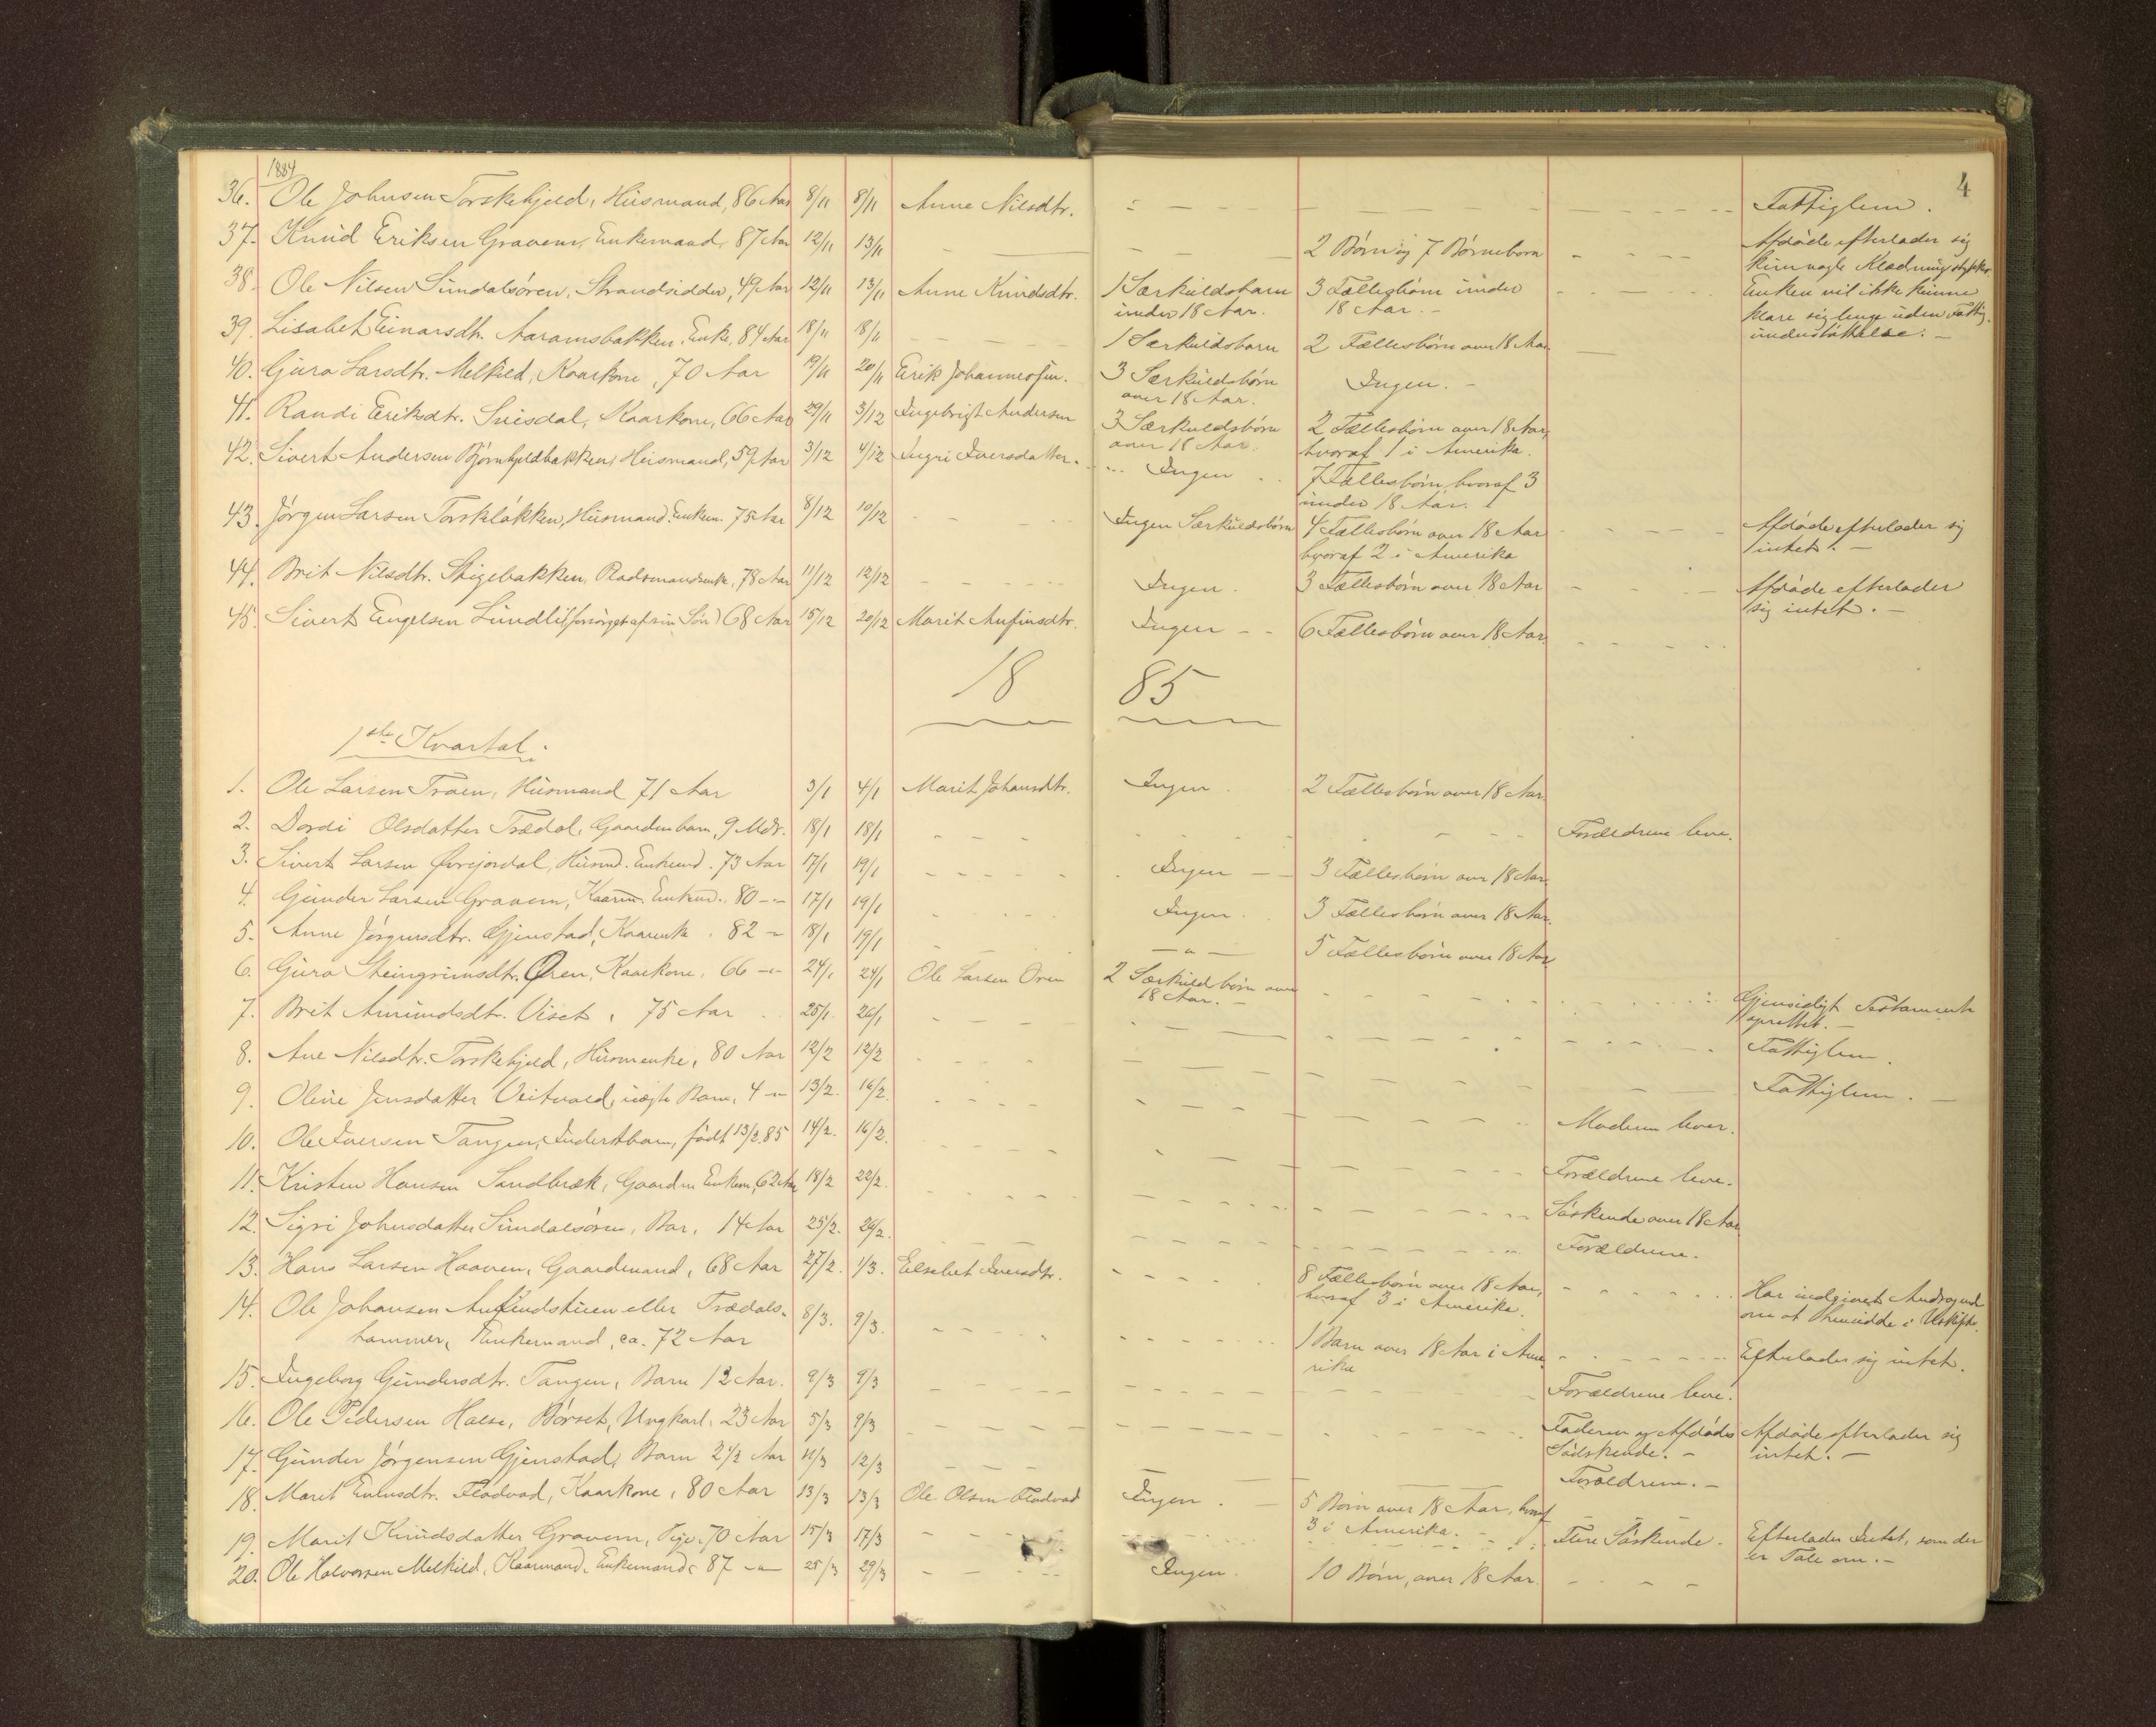 4
1884
36. Ole Johnsen Torskehjeld, Husmand, 86 Aar 8/11 8/11 Anne Nilsdtr. Fattiglem.
37. Knud Eriksen Gravem, Enkemand, 87 Aar 12/11 13/11 2 Børn og 7 Børnebørn Afdøde efterlader sig
kun nogle Klædningsstykker.
38. Ole Nilsen Sundalsøren, Strandsidder, 49 Aar 12/11 13/11 Anne Knudsdtr. 1 Særkuldsbarn 3 Fællesbørn under Enken vil ikke kunne
under 18 Aar. 18 Aar. - klare sig længe uden Fattig-
understøttelse. -
39. Lisabet Einarsdtr. Aaramsbakken, Enke, 84 Aar 18/11 18/11 1 Særkuldsbarn 2 Fællesbørn over 18 Aar.
40. Guro Larsdtr. Melkild, Kaarkone, 70 Aar 19/11 20/11 Erik Johannessen. 3 Særkuldsbørn Ingen. -
over 18 Aar.
41. Randi Eriksdtr. Snisdal, Kaarkone, 66 Aar 29/11 3/12 Ingebrigt Andersen 3 Særkuldsbørn 2 Fællesbørn over 18 Aar,
over 18 Aar. hvoraf 1 i Amerika.
42. Sivert Andersen Bjørnhjeldbakken, Husmand, 59 Aar 3/12 4/12 Ingri Iversdatter. Ingen 7 Fællesbørn, hvoraf 3
under 18 Aar.
43. Jørgen Larsen Torskløkken, Husmand. Enkem. 75 Aar 8/12 10/12 Ingen Særkuldsbørn 4 Fællesbørn over 18 Aar Afdøde efterlader sig
hvoraf 2 i Amerika intet. -
44. Brit Nilsdtr. Stigebakken, Radsmandsenke, 78 Aar 11/12 12/12 Ingen. 3 Fællesbørn over 18 Aar Afdøde efterlader
sig intet. -
45. Sivert Engelsen Lundli (forsørget af sin Søn) 68 Aar 15/12 20/12 Marit Anfinsdtr. Ingen 6 Fællesbørn over 18 Aar.
18 85
1ste Kvartal.
1. Ole Larsen Træen, Husmand 71 Aar 3/1 4/1 Marit Johansdtr. Ingen. 2 Fællesbørn over 18 Aar.
2. Dordi Olsdatter Trædal, Gaardm barn, 9 Mdr. 18/1 18/1 Forældrene leve.
3. Sivert Larsen Øvrejordal, Husmd. Enkemd. 73 Aar 17/1 19/1 Ingen 3 Fællesbørn over 18 Aar.
4. Gunder Larsen Gravem, Kaarm. Enkemd. 80 -"- 17/1 19/1 Ingen. 3 Fællesbørn over 18 Aar.
5. Anne Jørgensdtr. Gjenstad, Kaarenke. 82 -"- 18/1 19/1 -"- 5 Fællesbørn over 18 Aar.
6. Guro Steingrimsdtr. Øren, Kaarkone. 66 -"- 24/1 24/1 Ole Larsen Øren 2 Særkuldbørn over Gjensidigt Testamente
18 Aar. - oprettet. -
7. Brit Amundsdtr. Viset, 75 Aar 25/1 26/1 Fattiglem.
8. Ane Nilsdtr. Torskehjeld, Husmenke, 80 Aar 12/2 12/2 Fattiglem.
9. Oline Jensdatter Veitvold, uægte Barn, 4 -"- 13/2. 16/2. Moderen lever.
10. Ole Iversen Tangen, Inderstbarn, født 13/2.85 14/2. 16/2. Forældrene leve.
11. Kristen Hansen Sandbræk, Gaardm Enkem, 62 Aar 18/2 22/2. Søskende over 18 Aar
12. Sigri Johnsdatter Sundalsøren, Bar. 14 Aar 25/2. 26/2. Forældrene.
13. Hans Larsen Haaven, Gaardmand, 68 Aar 27/2. 1/3. Elsebet Iversdtr. 8 Fællesbørn over 18 Aar, Har indgivet Andragende
hvoraf 3 i Amerika. om at hensidde i Uskifte.
14. Ole Johansen Anfindstuen eller Trædals- 8/3. 9/3. 1 Barn over 18 Aar i Ame- Efterlader sig intet.
hammer, Enkemand, ca. 72 Aar rika
15. Ingeborg Gundersdtr. Tangen, Barn 12 Aar. 9/3 9/3 Forældrene leve.
16. Ole Pedersen Halse, Børset, Ungkarl. 23 Aar 5/3 9/3 Faderen og Afdødes Afdøde efterlader sig
Sødskende. - intet. -
17. Gunder Jørgensen Gjenstad, Barn 2 1/2 Aar 11/3 12/3 Forældrene. -
18. Marit Evensdtr. Flodvad, Kaarkone, 80 Aar 13/3 13/3 Ole Olsen Flodvad Ingen. 5 Børn over 18 Aar, hvoraf
3 i Amerika.
19. Marit Knudsdatter Gravem, Pige. 70 Aar 15/3 17/3 Flere Søskende. Efterlader Intet, som der
er Tale om. -
20. Ole Halvorsen Melkild, Kaarmand, Enkemand 87 -"- 25/3 29/3 Ingen. 10 Børn, over 18 Aar.